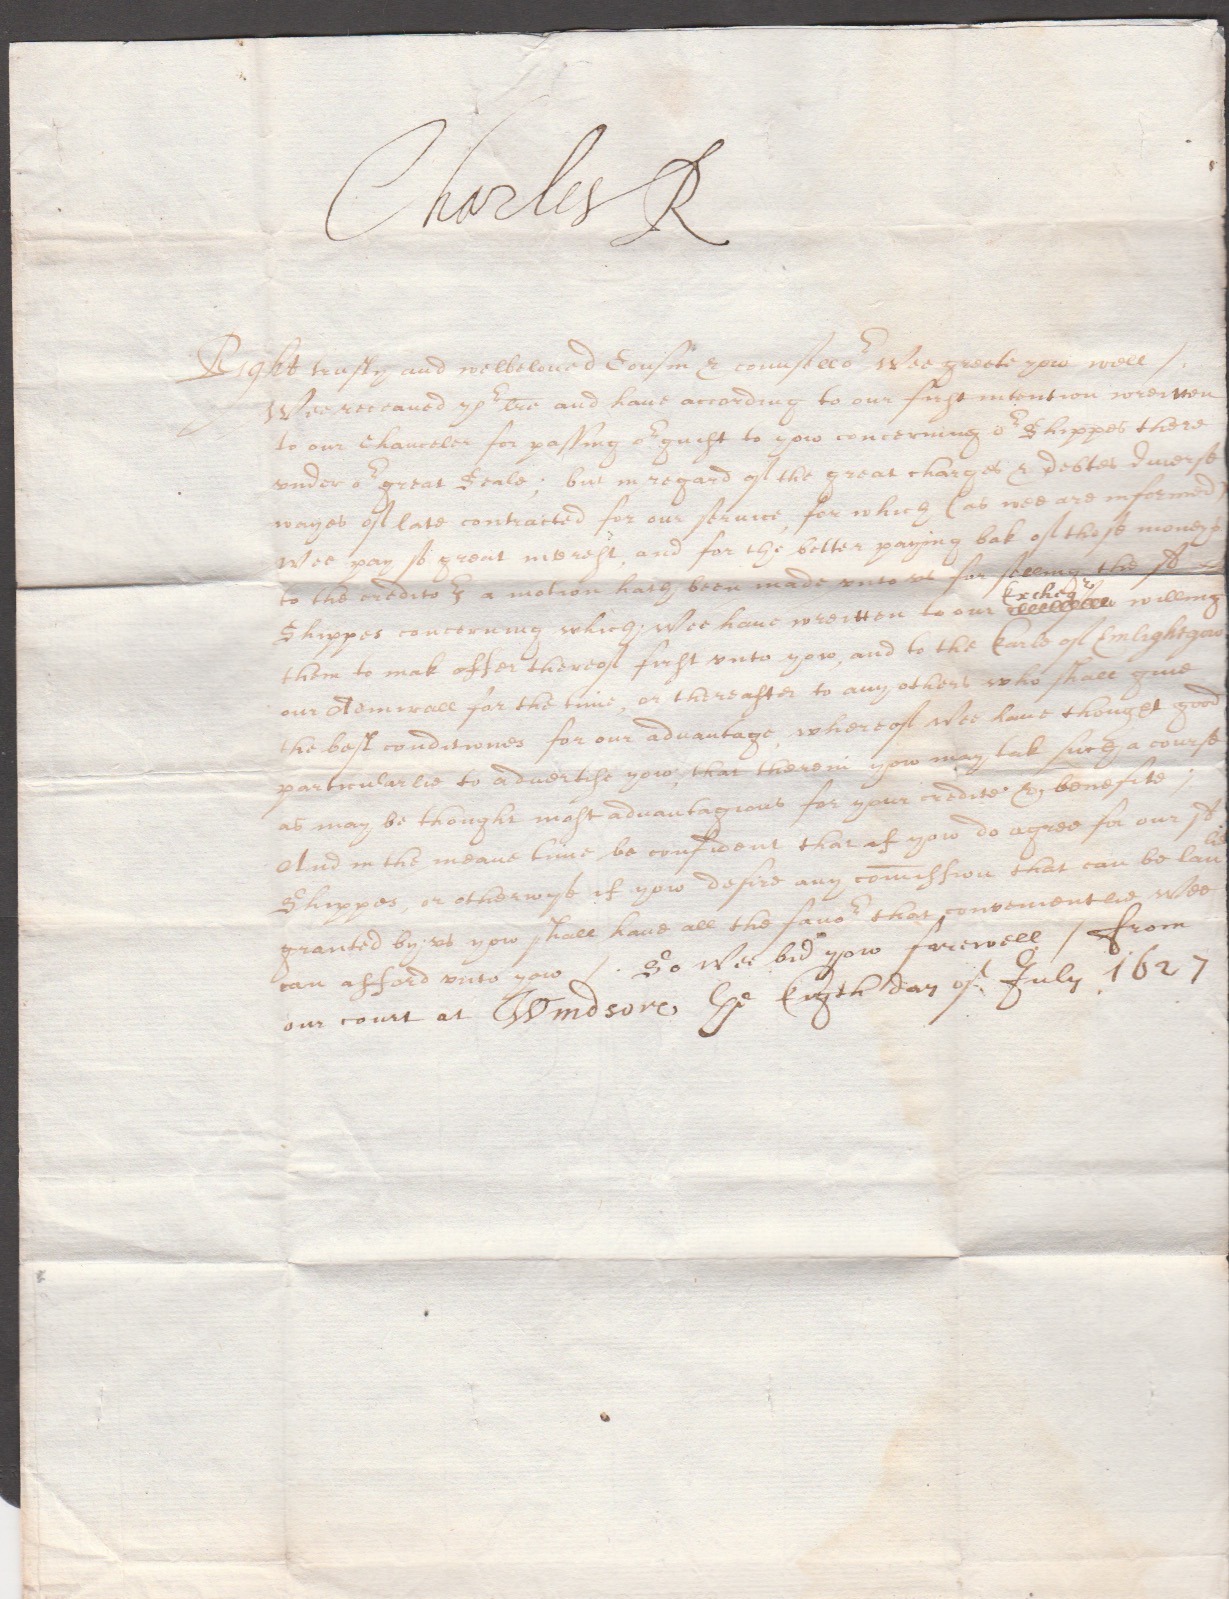 Charles R
Right trusty and welbeloued Cousin & counsello^r Wee greete yow well /.
Wee receaued yo^r l̅re and haue according to our first intention wreitten
to our Chanceler for passing o^r guift to yow concerning o^r Shippes there
vnder o^r great Seale; but in regard of the great charges & debtes diuerse
wayes of late contracted for our seruice, for which (as wee are informed)
Wee pay so great interest, and for the better paying bak of those moneyes
to the credito^rs a motion hath been made vnto vs for selling the s^d
Shippes concerning which, Wee haue wreitten to our Excheq^r willing
them to mak offer thereof first vnto yow, and to the Earle of Linlithgow
our Admirall for the time, or thereafter to any others who shall giue
the best conditiones for our aduantage, whereof Wee haue thought good
particularlie to aduertise yow, that therein yow may tak such a course
as may be thought most aduantagious for your credite & benefite;
And in the meane time be confident that if yow do agree for our s^d
Shippes, or otherwyse if yow desire any com̅ission that can be lau^lie
granted by vs yow shall haue all the fauo^r that conuenientlie Wee
can afford vnto yow /. So Wee bid yow farewell / From
our court at Windsore, the Eight day of July 1627